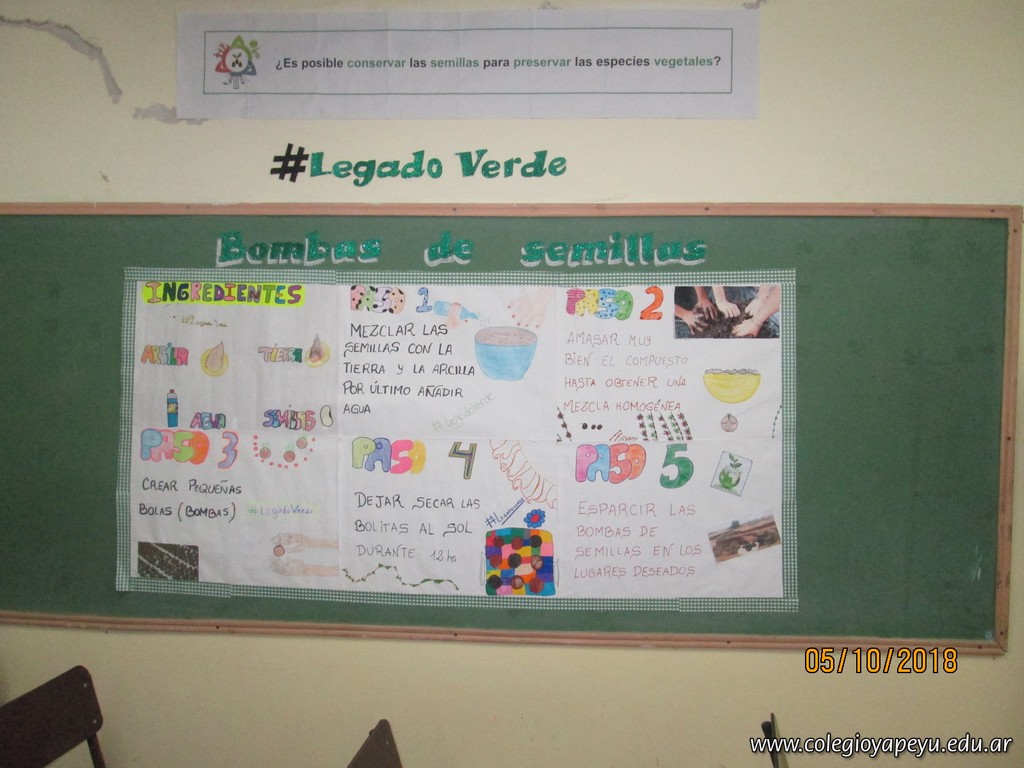 ¿Es posible conservar las semillas para preservar las especies vegetales?
#Legado Verde
Bombas de semillas
INGREDIENTES
ARCILLA
TIERRA
AGUA
SEMILLAS
PASO 1
MEZCLAR LAS
SEMILLAS CON LA
TIERRA Y LA ARCILLA
POR ÚLTIMO AÑADIR
AGUA
#legadoverde
PASO 2
AMASAR MUY
BIEN EL COMPUESTO
HASTA OBTENER UNA
MEZCLA HOMOGÉNEA
PASO 3
CREAR PEQUEÑAS
BOLAS (BOMBAS)
#LegadoVerde
PASO 4
DEJAR SECAR LAS
BOLITAS AL SOL
DURANTE 12 hs
PASO 5
ESPARCIR LAS
BOMBAS DE
SEMILLAS EN LOS
LUGARES DESEADOS
05/10/2018
www.colegioyapeyu.edu.ar